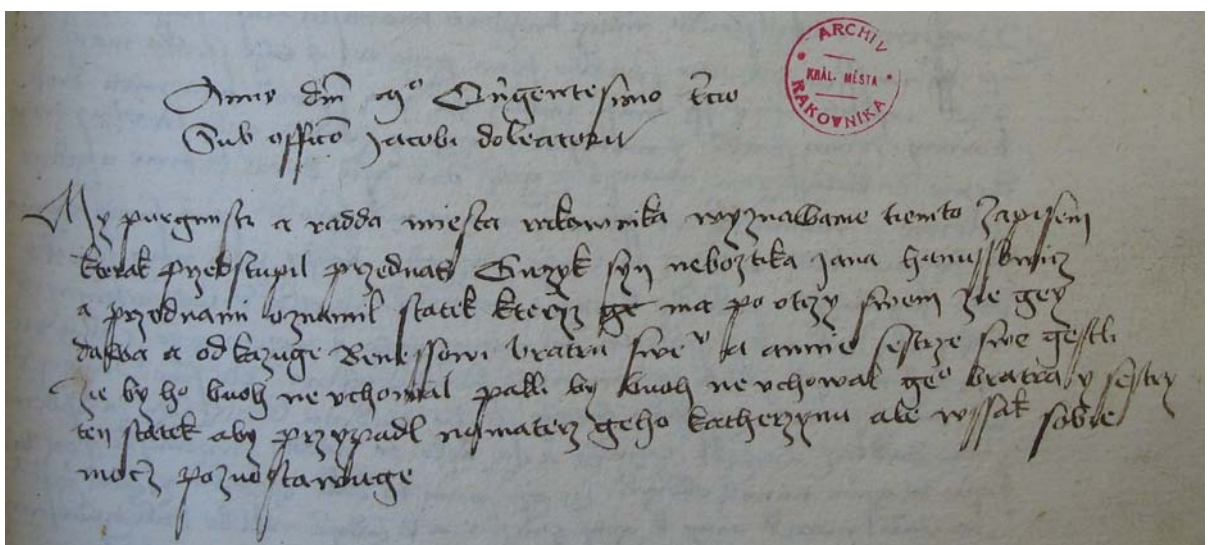 Anno dm̄ mo Qūgentesimo tcio
Sub officō Jacobi doleatoris
ARCHIV
KRÁL. MĚSTA
RAKOVNÍKA
My purgmstr a radda miesta rakownika wyznawame tiemto Zapisem
kterak przedstupil przednas Girzyk syn nebožtika Jana hanussowicz
a przednami oznamil statek kteryz ge ma po otczy swem zie gey
dawa a odkazuge Benessowi bratru sweu a annie sestrze swe gestli
Zie by ho buoh ne vchowal paklli by buoh ne vchowal geo bratra y sestry
ten statek aby przypadl na materz geho katherzynu ale wssak sobie
mocz pozuostawuge